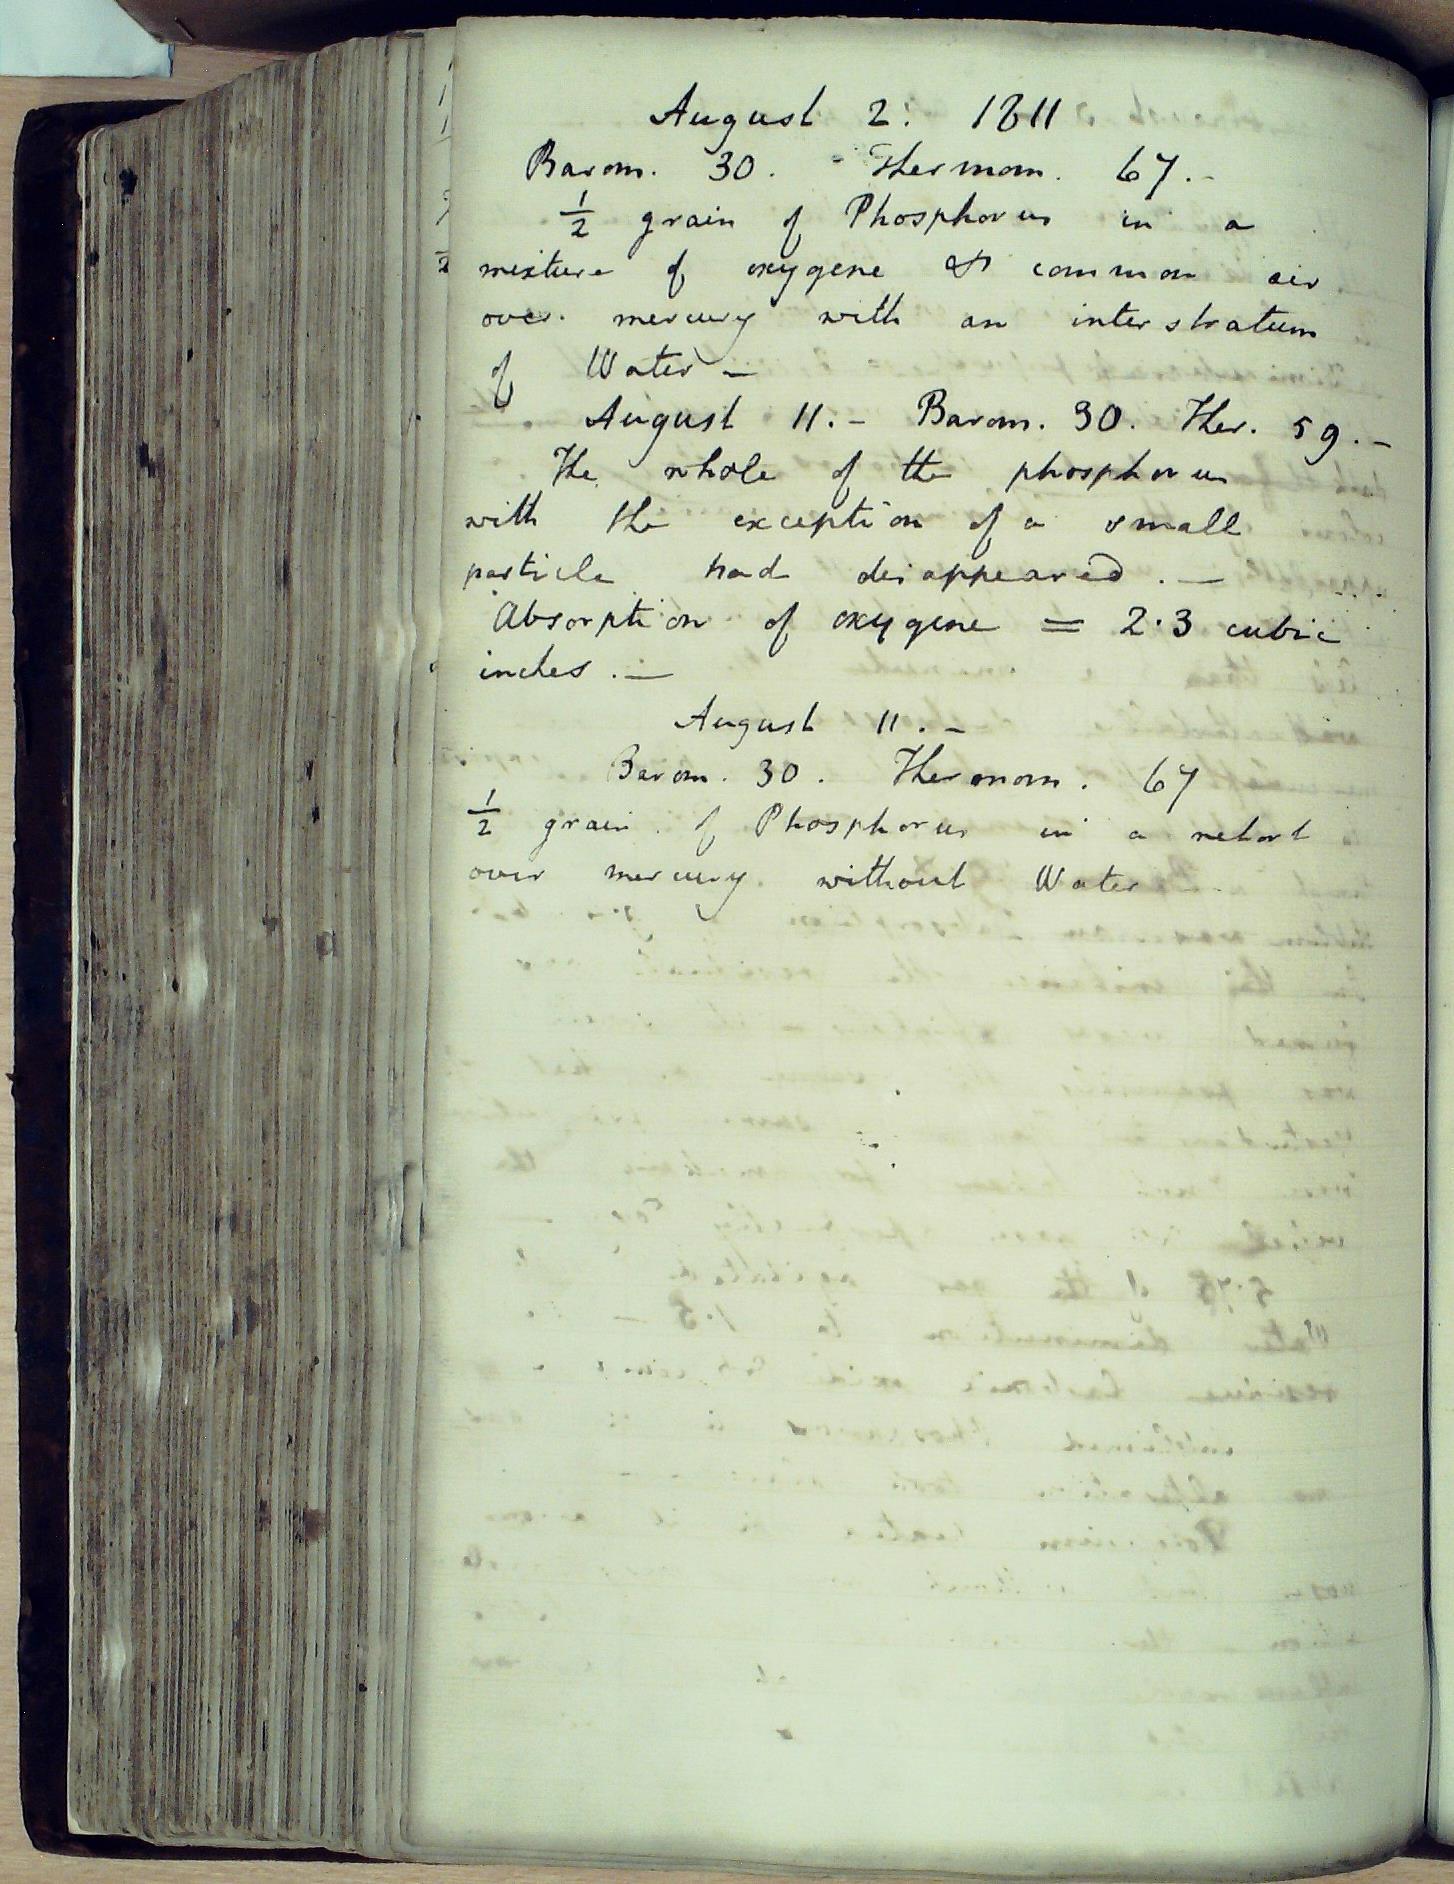 August 2: 1811
Barom. 30. - Thermom. 67.-
1/2 grain of Phosphorus in a
mixture of oxygene & common air
over mercury with an interstratum
of Water —
August 11.- Barom. 30. Ther. 59.-
The whole of the phosphorus
with the exception of a small
particle had disappeared. —
Absorption of oxygene = 2.3 cubic
inches. —
August 11. -
Barom. 30. Thermom. 67
1/2 grain of Phosphorus in a retort
over mercury without Water